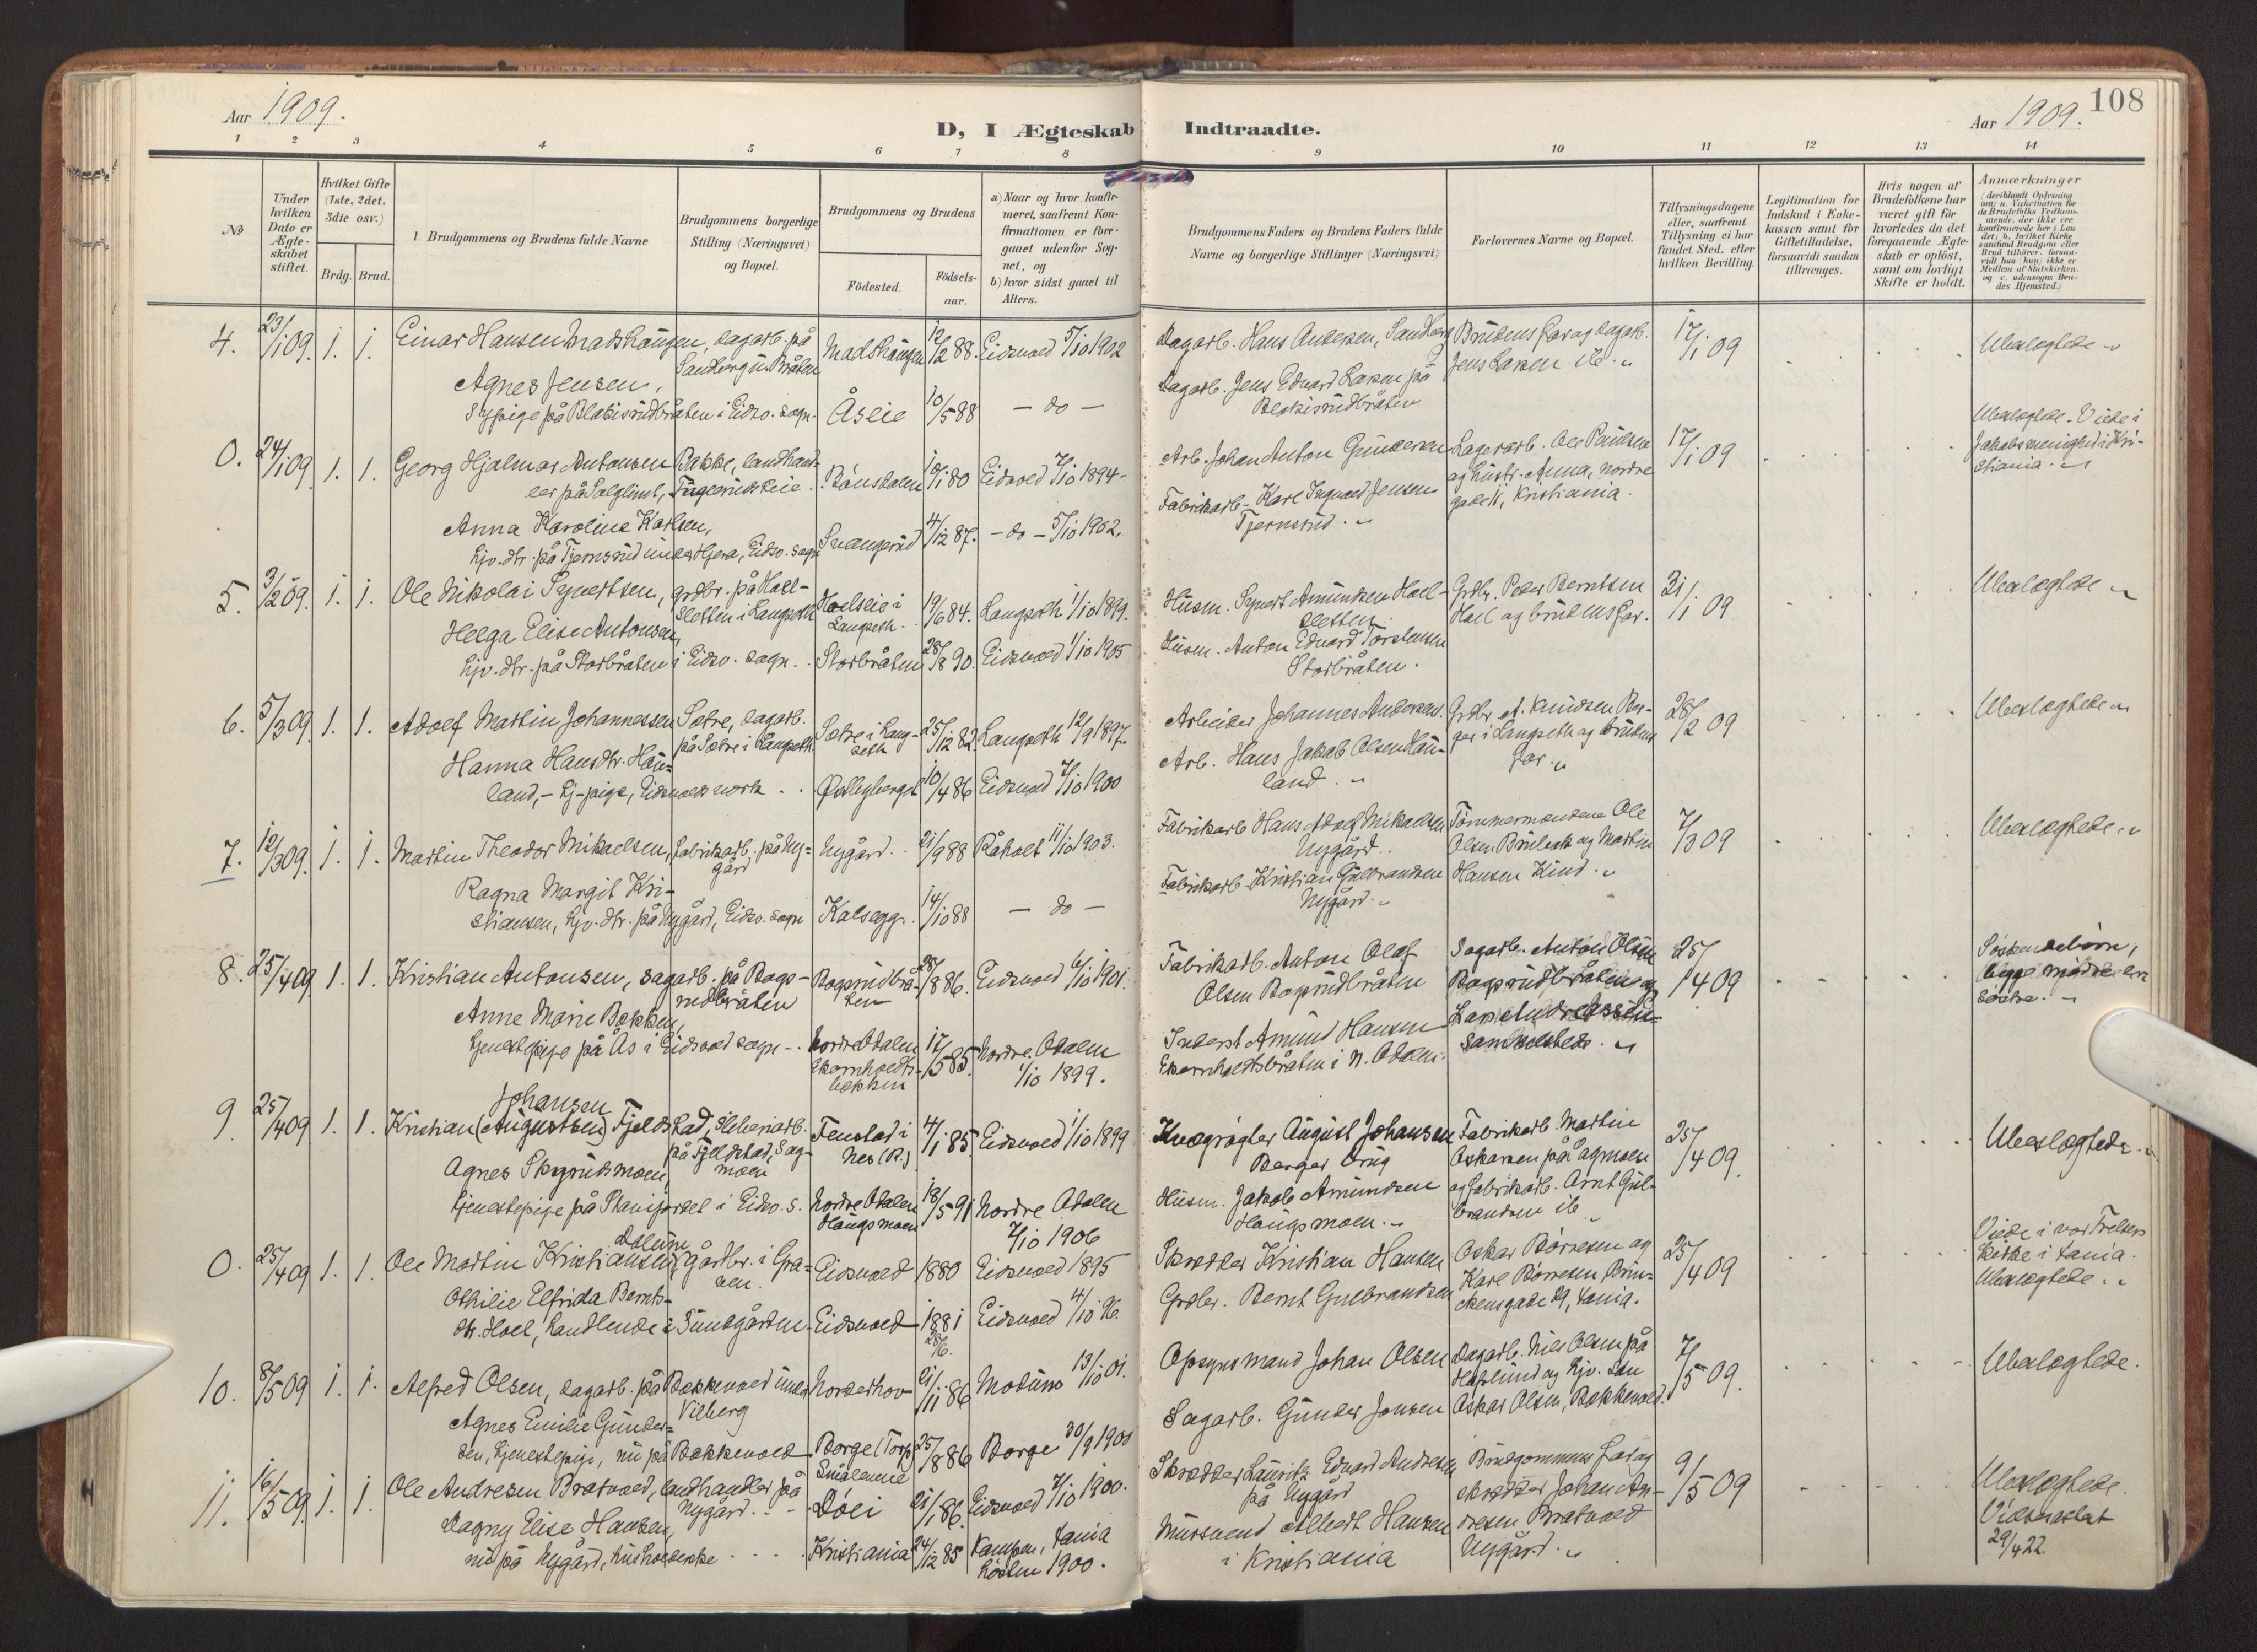 Aar 1909.
D, I Ægteskab Indtraadte.
Aar 1909.
108
1 2 3 4 5 6 7 8 9 10 11 12 13 14
No
Under hvilken Dato er Ægte-skabet stiftet.
Hvilket Gifte (1ste, 2det. 3die osv.)
Brdg. Brud.
1. Brudgommens og Brudens fulde Navne
Brudgommens borgerlige Stilling (Næringsvei) og Bopæl.
Brudgommens og Brudens
Födested.
Födsels-aar.
a) Naar og hvor konfir-meret, saafremt Kon-firmationen er fore-gaaet udenfor Sog-net, og
b) hvor sidst gaaet til Alters.
Brudgommens Faders og Brudens Faders fulde Navne og borgerlige Stillinger (Næringsvei)
Forlovernes Navne og Bopæl.
Tillysningsdagene eller, saafremt Tillysning ei har fundet Sted, efter hvilken Bevilling.
Legitimation for Indskud i Enke-kassen samt for Giftetilladelse, forsaavidt saadan tiltrænges.
Hvis nogen af Brudefolkene har været gift för hvorledes da det foregaaende Ægte-skab er oplöst, samt om lovligt Skifte er holdt.
Anmærkninger
4. 23/1 09. 1. 1. Einar Hansen Madshaugen, dagarb. på Sandberg u. Bråten Madshaugen 12/2 88. Eidsvold 5/10 1902 Dagarb. Hans Andersen, Sandberg Brudens far og dagarb. Jens Larsen ib. 17/1 09 Ubeslægtede
Agnes Jensen,
sypige på Blekisrudbråten i Eidsv. sogn. Åseie 10/5 88 - do - Dagarb. Jens Eduard Larsen på Blekisrudbråten
0. 24/1 09 1. 1. Georg Hjalmar Antonsen Bakke, landhand-ler på Solglimt, Fuglerudseie. Bånsdalen 10/1 80 Eidsvold 7/10 1894. Arb. Johan Anton Gundersen Lagerarb. Ole Paulsen og hustr. Anna, Nordre gade 11, Kristiania. 17/1 09 Ubeslægtede. Viede i Jakobs menighed i Kri-stiania.
Anna Karoline Karlsen,
hjv. dtr. på Tjernsrud under Hjera, Eidsv. sogn Svangerud 4/12 87. - do - 5/10 1902. Fabrikarb. Karl Ingvald Jensen Tjernsrud.
5. 3/2 09. 1. 1. Ole Nikolai Syvertsen, grdbr. på Hoel-sletten i Langseth Hoelseie i Langseth. 19/6 84. Langseth 1/10 1899. Husm. Syvert Amundsen Hoel-sletten. Grdbr. Peder Berntsen Hoel og brudens far. 31/1 09 Ubeslægtede
Helga Elise Antonsen,
hjv. dtr. på Storbråten i Eidsv. sogn. Storbråten 28/8 90. Eidsvold 1/10 1905 Husm. Anton Eduard Torstensen Storbråten.
6. 5/3 09. 1. 1. Adolf Martin Johannessen Sætre, dagarb. på Sætre i Langseth Sætre i Lang-seth 25/12 82. Langseth 12/9 1897. Arbeider Johannes Andersen. Grdbr. A. Knudsen Ber-ger i Langseth og brudens far. 28/2 09 Ubeslægtede
Hanna Hansdtr. Hau-
land, - tj-pige, Eidsvoldsværk 10/4 86 Eidsvold 7/10 1900 Arb. Hans Jakob Olsen Hau-land.
7. 12/3 09. 1. 1. Martin Theodor Mikaelsen, fabrikarb. på Ny-gård Nygård. 21/9 88 Råholt 11/10 1903. Fabrikarb. Hans Adolf Mikaelsen Nygård. Tömmermændene Ole Olsen Brubak og Martin Hansen Kind. 7/3 09 Ubeslægtede
Ragna Margit Kri-
stiansen, hjv. dtr. på Nygård, Eidsv. sogn Kalsegg. 14/10 88 - do - Fabrikarb. Kristian Gulbrandsen Nygård.
8. 25/4 09. 1. 1. Kristian Antonsen, sagarb. på Bogs-rudbråten Bogsrudbrå-ten 28/8 86. Eidsvold 6/10 1901. Fabrikarb. Anton Olaf Olsen Bogsrudbråten Sagarb. Anton Olsen Bogsrudbråten og Lars Andreassen Samuelsteds. 25/4 09 Söskendebörn, begge mödre ere söstre.
Anne Marie Bekken,
tjenestepige på Ås i Eidsvold sogn. Nordre Odalen Ekornholts-bekken 17/5 85. Nordre Odalen 1/10 1899. Inderst Amund Hansen Ekornholtsbråten i N. Odalen.
9. 25/4 09. 1. 1. Kristian (Augustsen) Johansen Fjeldstad, sliberiarb. på Fjeldstad, Sag-moen Fenstad i Nes (R.) 4/1 85. Eidsvold 1/10 1899 Kvægrögter August Johansen Berger brug Fabrikarb. Martin Oskarsen på Ågmoen og fabrikarb. Arnt Gul-brandsen ib. 25/4 09. Ubeslægtede.
Agnes Skyrudsmoen,
tjenestepige på i Eidsv. s. Nordre Odalen Haugsmoen 18/5 91 Nordre Odalen 7/10 1906 Husm. Jakob Amundsen Haugsmoen.
0. 25/4 09 1. 1. Ole Martin Kristiansen Dalum, gårdbr. i Eidsvold 1880 Eidsvold 1895 Skrædder Kristian Hansen Oskar Börresen og Karl Börresen, gade 29, Xania. 25/4 09 Viede i vor Frelsers kirke i Xania. Ubeslægtede.
Othilie Elfrida Bernts-
dtr. Hoel, handlende i Sundgården Eidsvold 1881 28/6. Eidsvold 4/10 96. Grdbr. Bernt Gulbrandsen
10. 8/5 09 1. 1. Alfred Olsen, dagarb. på Bekkevold under Vilberg Norderhov 21/11 86 Modum 13/10 01. Opsynsmand Johan Olsen Dagarb. Nils Olsen på Haslund og hjv. sön Oskar Olsen, Bekkevold. 7/5 09. Ubeslægtede.
Agnes Emilie Gunder-
sen, tjenestepige, nu på Bekkevold Borge (Torp) Smålenene 25/8 86 Borge 30/9 1900 Sagarb. Gunder Jonsen
11. 16/5 09. 1. 1. Ole Andresen Bratvold, landhandler på Nygård. Döli 21/1 86. Eidsvold 7/10 1900. Skrædder Lauritz Eduard Andresen på Nygård Brudgommens far og skrædder Johan An-dresen Bratvold Nygård. 9/5 09 Ubeslægtede. Vidneattest 29/4 22.
Dagny Elise Hansen,
nu på Nygård, husholderske Kristiania 24/12 85 Kampen, Xania hösten 1900. Mursvend Albert Hansen i Kristiania